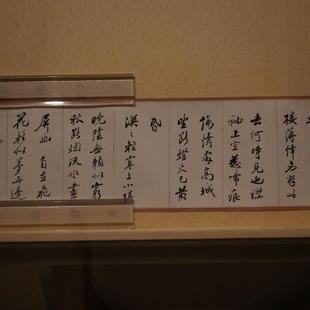 樓薄倖名存此
去何時見也襟
袖上空惹啼痕
傷情處高城
望斷燈火已黄
昏
漠〻輕寒上小樓
曉陰無賴似窮
秋淡烟流水畫
屏幽 自在飛
花輕似夢無邊